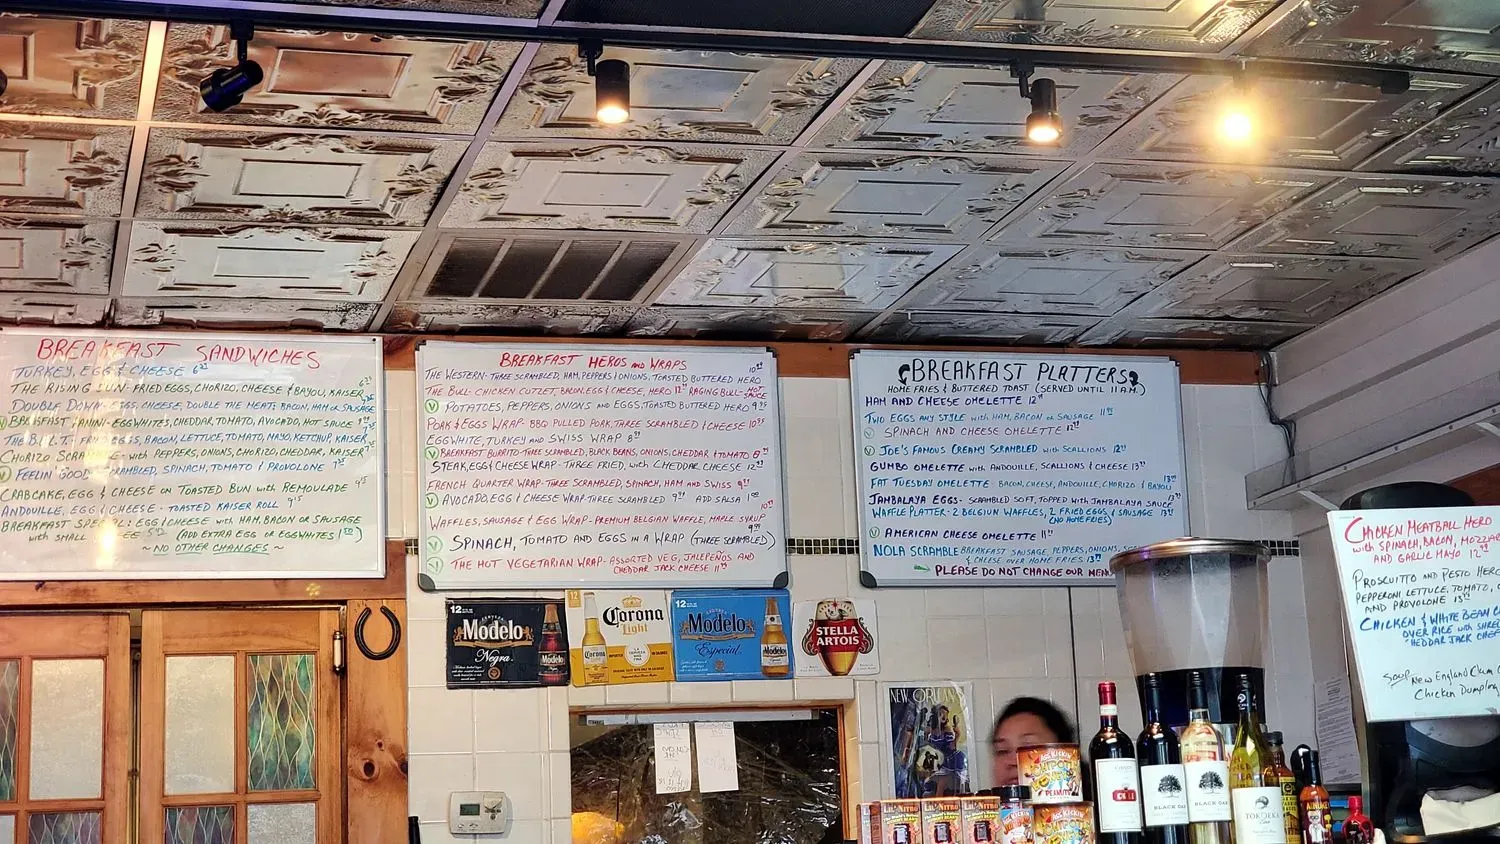 BREAKFAST SANDWICHES
TURKEY, EGG & CHEESE
THE RISING SUN- FRIED EGGS, CHORIZO, CHEESE & BAYOU, KAISER
DOUBLE DOWN- EGGS, CHEESE, DOUBLE THE MEAT: BACON, HAM or SAUSAGE
BREAKFAST PANINI- EGG WHITES, CHEDDAR, TOMATO, AVOCADO, HOT SAUCE
THE B.E.L.T. FRIED EGGS, BACON, LETTUCE, TOMATO, MAYO, KETCHUP, KAISER
CHORIZO with PEPPERS, ONIONS, CHORIZO, CHEDDAR, KAISER
V FEELIN' GOOD SCRAMBLED, SPINACH, TOMATO & PROVOLONE
CRABCAKE, EGG & CHEESE ON TOASTED BUN with REMOULADE
ANDOUILLE, EGG & CHEESE - TOASTED KAISER ROLL
BREAKFAST SPECIAL: EGG & CHEESE with HAM, BACON OR SAUSAGE
with SMALL (ADD EXTRA EGG OR EGGWHITES)
~ NO OTHER CHANGES ~
BREAKFAST HEROS AND WRAPS
THE WESTERN- THREE SCRAMBLED, HAM, PEPPERS & ONIONS, TOASTED BUTTERED HERO
THE BULL- CHICKEN CUTLET, BACON, EGG & CHEESE, HERO RAGING BULL- HOT SAUCE
V POTATOES, PEPPERS, ONIONS AND EGGS, TOASTED BUTTERED HERO
PORK & EGGS WRAP- BBQ PULLED PORK, THREE SCRAMBLED & CHEESE
EGG WHITE, TURKEY AND SWISS WRAP
V BREAKFAST BURRITO- THREE SCRAMBLED, BLACK BEANS, ONIONS, CHEDDAR & TOMATO
STEAK, EGG & CHEESE WRAP - THREE FRIED, with CHEDDAR CHEESE
FRENCH QUARTER WRAP- THREE SCRAMBLED, SPINACH, HAM AND SWISS
V AVOCADO, EGG & CHEESE WRAP- THREE SCRAMBLED ADD SALSA
WAFFLES, SAUSAGE & EGG WRAP- PREMIUM BELGIAN WAFFLE, MAPLE SYRUP
V SPINACH, TOMATO AND EGGS IN A WRAP (THREE SCRAMBLED)
V THE HOT VEGETARIAN WRAP- ASSORTED VEG, JALEPEÑOS AND
CHEDDAR JACK CHEESE
BREAKFAST PLATTERS
HOME FRIES & BUTTERED TOAST (SERVED UNTIL 11 A.M.)
HAM AND CHEESE OMELETTE
TWO EGGS ANY STYLE with HAM, BACON or SAUSAGE
V SPINACH AND CHEESE OMELETTE
V JOE'S FAMOUS CREAMY SCRAMBLED with SCALLIONS
GUMBO OMELETTE with ANDOUILLE, SCALLIONS & CHEESE
FAT TUESDAY OMELETTE BACON, CHEESE, ANDOUILLE, CHORIZO & BAYOU
JAMBALAYA EGGS- SCRAMBLED SOFT, TOPPED with JAMBALAYA SAUCE
WAFFLE PLATTER- 2 BELGIUN WAFFLES, 2 FRIED EGGS & SAUSAGE
(NO HOMEFRIES)
V AMERICAN CHEESE OMELETTE
NOLA SCRAMBLE BREAKFAST SAUSAGE, PEPPERS, ONIONS,
& CHEESE OVER HOME FRIES
PLEASE DO NOT CHANGE OUR MEN
CHICKEN MEATBALL HERO
with SPINACH, BACON, MOZZAR
AND GARLIC MAYO
PROSCUITTO AND PESTO HERO
PEPPERONI LETTUCE, TOMATO,
AND PROVOLONE
CHICKEN & WHITE BEAN
OVER RICE with SHRE
CHEDDAR JACK CHEE
SOUP New England Clam
Chicken Dumpling
12
Modelo
Negra
12
Corona
Light
12
Modelo
Especial
STELLA
ARTOIS
NEW ORLEANS
LIL' NITRO
LIL' NITRO
LIL' NITRO
PEANUTS
BLACK OAK
BLACK OAK